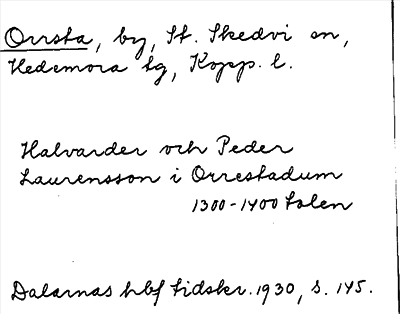 Orrsta, by, St. Skedvi sn,
Hedemora tg, Kopp. l.
Halvarder och Peder
Laurensson i Orrestadum
1300-1400 talen
Dalarnas hbf tidskr. 1930, s. 145.